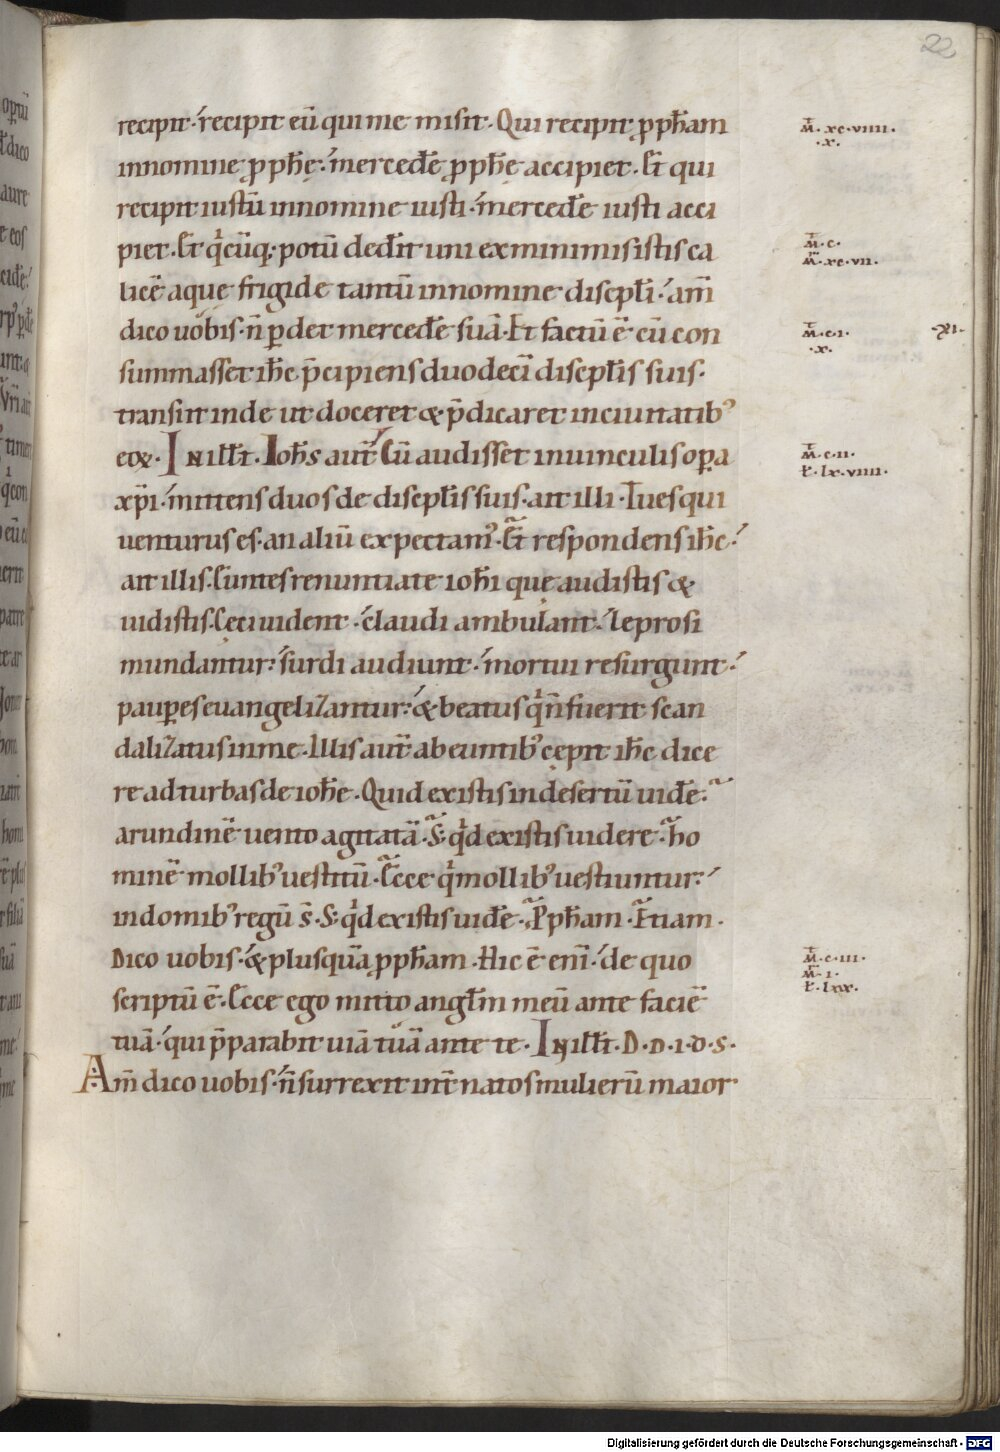 22
recipit · recipit eū qui me misit · Qui recipit ꝓph̄am
innomine ꝓph̄ę · mercedē ꝓph̄ę accipiet · Et qui
recipit iustū innomine iusti · mercedē iusti acci
piet · Et q̇cūq; potū dedit uni exminimis istis ca
licē aquę frigidę tantū innomine discipl̄i · am̄
dico uobis · n̄ ꝑdet mercedē suā · Et factū ē cū con
summasset ih̄c p̄cipiens duodecī discipl̄is suis ·
transiit inde ut doceret & p̄dicaret inciuitatib;
eoꝝ · In ill̄t · Ioh̄s aut̄ Cū audisset inuinculis oꝑa
xp̄i · mittens duos de discipl̄is suis · ait illi · Tu es qui
uenturus es · an aliū expectam᷒ · Et respondens ih̄c ·
ait illis · Euntes renuntiate ioh̄i quę audistis &
uidistis · Ceci uident · claudi ambulant · leprosi
mundantur · surdi audiunt · mortui resurgunt ·
pauꝑes euangelizantur · & beatus q̇ n̄ fuerit scan
dalizatus inme · Illis aut̄ abeuntib; cępit ih̄c dice
re adturbas de ioh̄e · Quid existis indesertū uidē ·
arundinē uento agitatā · S; q̇d existis uidere · ho
minē mollib; uestitū · Ecce q̇ mollib; uestiuntur ·
indomib; regū s̄ · S; q̇d existis uidē · Pph̄am · Etiam ·
Dico uobis · & plusquā ꝓph̄am · Hic ē enī · de quo
scriptū ē · Ecce ego mitto angl̄m meū ante faciē
tuā · qui p̄parabit uiā tuā ante te · In ill̄t · D · D · I · D · S ·
Am̄ dico uobis · n̄ surrexit int̄ natos mulierū maior ·
M̄ · xc · viiii ·
· x ·
M̄ · c ·
M̄ · xc · vii ·
M̄ · c · i ·
· x ·
· XI ·
M̄ · c · ii ·
ł · lx · viiii ·
M̄ · c · iii ·
M̄ · i ·
ł · lxx ·
Digitalisierung gefördert durch die Deutsche Forschungsgemeinschaft · DFG